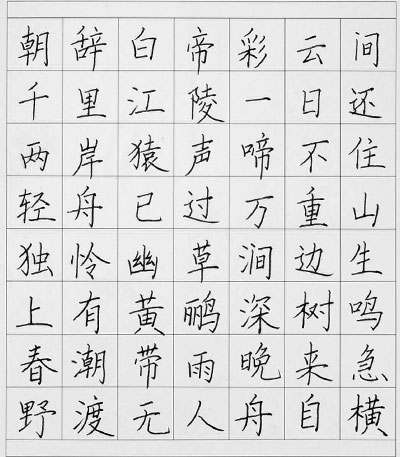 朝辞白帝彩云间
千里江陵一日还
两岸猿声啼不住
轻舟已过万重山
独怜幽草涧边生
上有黄鹂深树鸣
春潮带雨晚来急
野渡无人舟自横